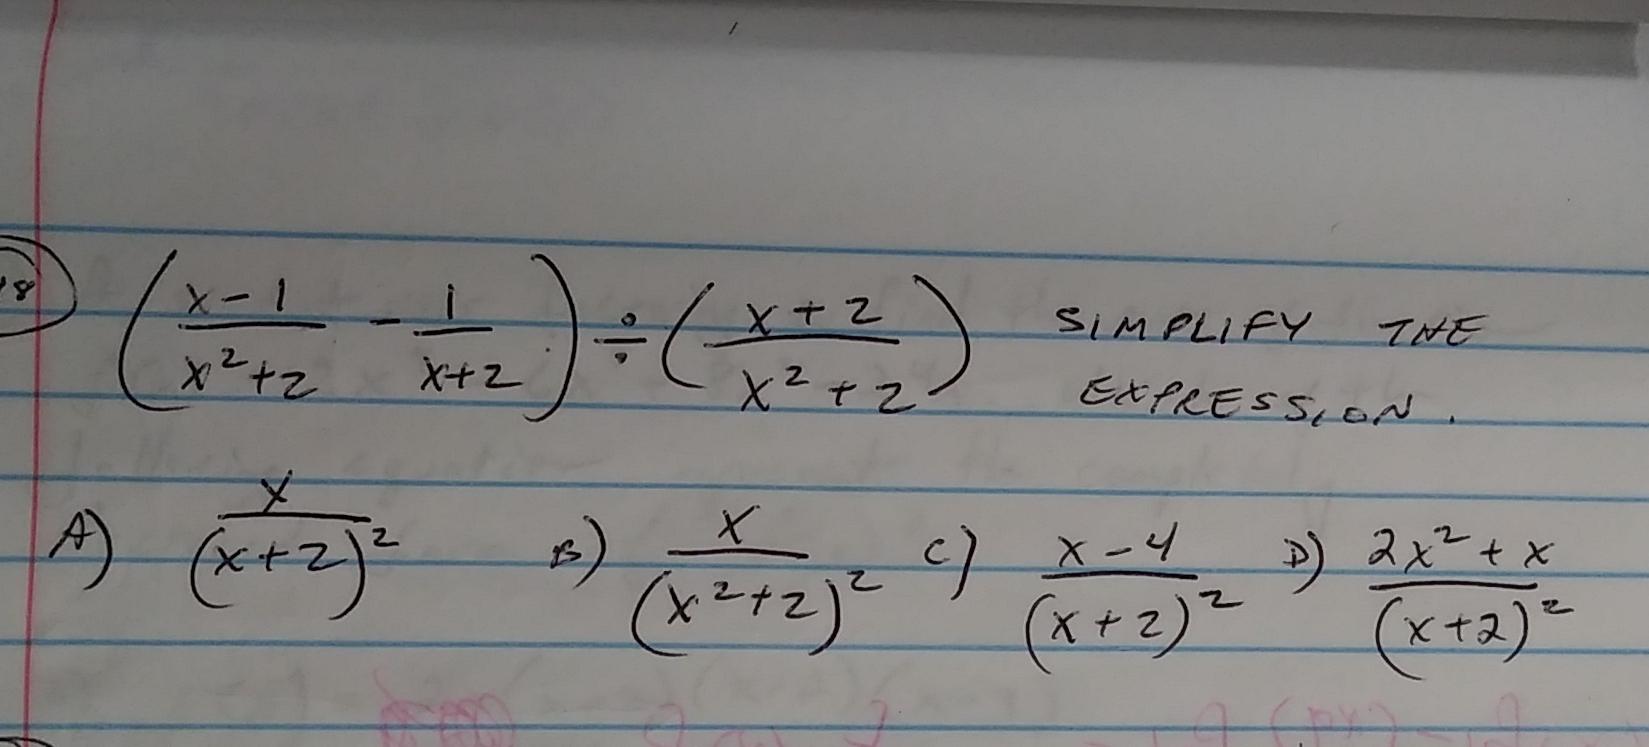 18 ( (x-1)/(x²+2) - 1/(x+2) ) ÷ ( (x+2)/(x²+2) ) SIMPLIFY THE
EXPRESSION.
A) x/(x+2)² B) x/(x²+2)² C) (x-4)/(x+2)² D) (2x²+x)/(x+2)²